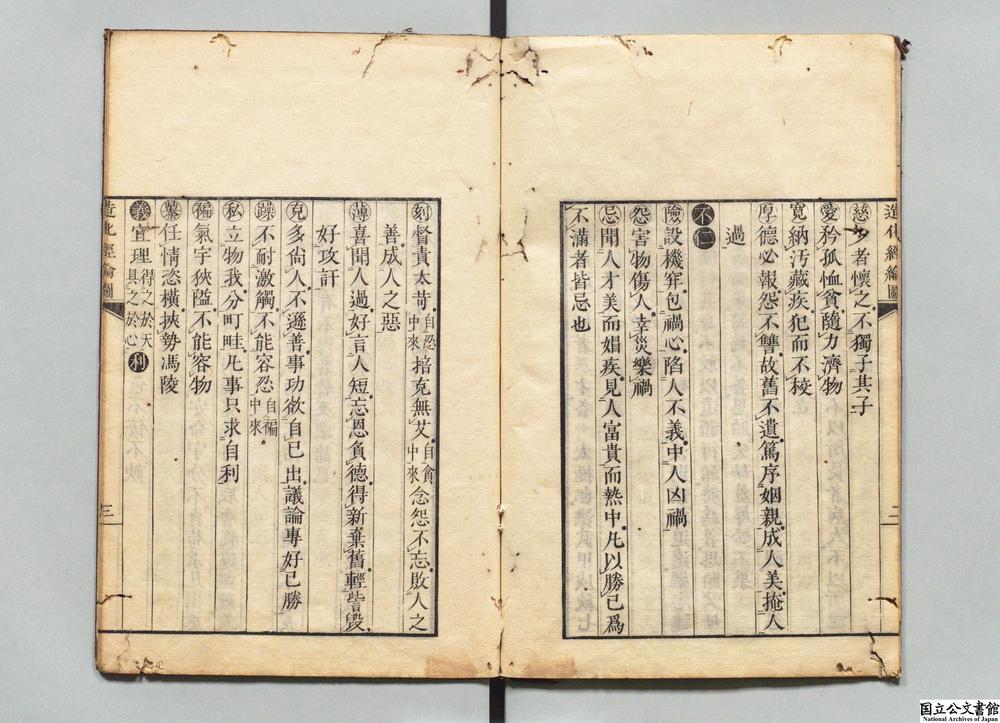 造化經綸圖
慈少者懷之不獨子其子
愛矜孤恤貧隨力濟物
寬納汚藏疾犯而不校
厚德必報怨不讐故舊不遺篤序姻親成人美掩人
過
不仁
險設機穽包禍心陷人不義中人凶禍
怨害物傷人幸災樂禍
忌聞人才美而媢疾見人富貴而熱中凡以勝己爲
不滿者皆忌也
二
刻督責太苛自忿中來掊克無艾自貪中來念怨不忘敗人之
善成人之惡
薄喜聞人過好言人短忘恩負德得新棄舊輕訾毀
好攻訐
克多尙人不遜善事功欲自己出議論專好己勝
躁不耐激觸不能容忍自褊中來
私立物我分町畦凡事只求自利
褊氣宇狹隘不能容物
暴任情恣橫挾勢馮陵
義宜理得之於天具之於心利
造化經綸圖
三
国立公文書館
National Archives of Japan